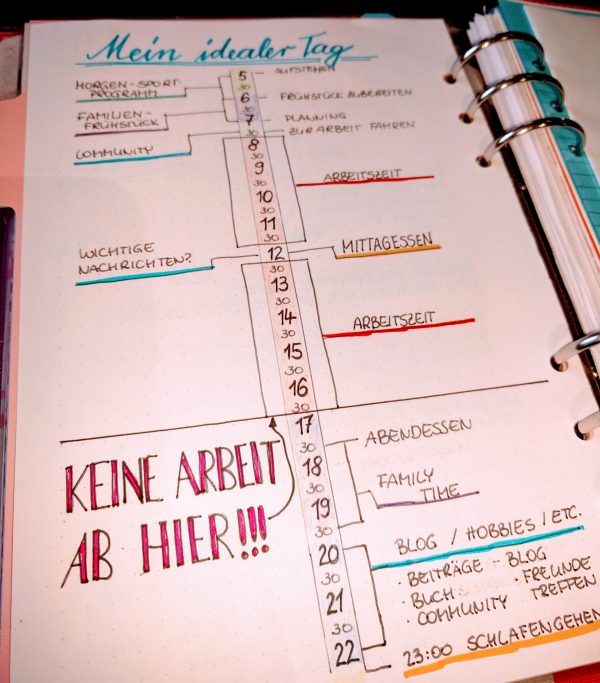 Mein idealer Tag
5 AUFSTEHEN
MORGEN-SPORT-
PROGRAMM
30
6 FRÜHSTÜCK ZUBEREITEN
30
FAMILIEN-
FRÜHSTÜCK
7 PLANNING
30 ZUR ARBEIT FAHREN
COMMUNITY
8
30
9
ARBEITSZEIT
30
10
30
11
30
WICHTIGE
NACHRICHTEN?
12 MITTAGESSEN
30
13
30
14 ARBEITSZEIT
30
15
30
16
30
17
KEINE ARBEIT
AB HIER!!!
30 ABENDESSEN
18
30 FAMILY
TIME
19
30
20 BLOG / HOBBIES / ETC.
30 · BEITRÄGE - BLOG
21 · BUCH · FREUNDE
· COMMUNITY TREFFEN
30
22
23:00 SCHLAFENGEHEN